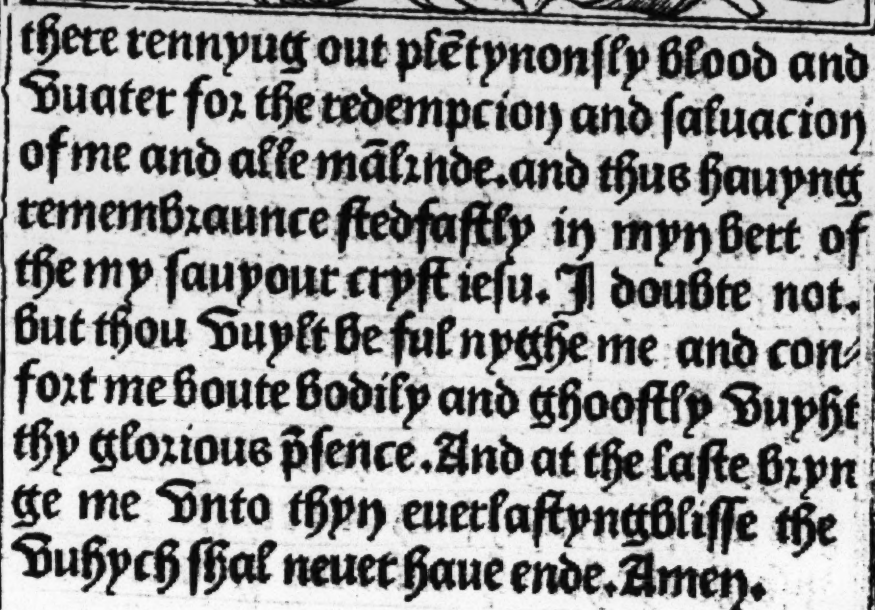 there rennyug out plētynonſly blood and
Vuater for the redempcion and ſaluacion
of me and alle mālrnde.and thus hauyng
remembraunce ſtedfaſtly in myn bert of
the my ſauyour cryſt ieſu. I doubte not.
but thou Vuylt be ful nyghe me and con//
fort me boute bodily and ghooſtly Vuyht
thy glorious p̄ſence. And at the laſte bryn
ge me Vnto thyn euerlaſtyngbliſſe the
Vuhych ſhal neuer haue ende. Amen.